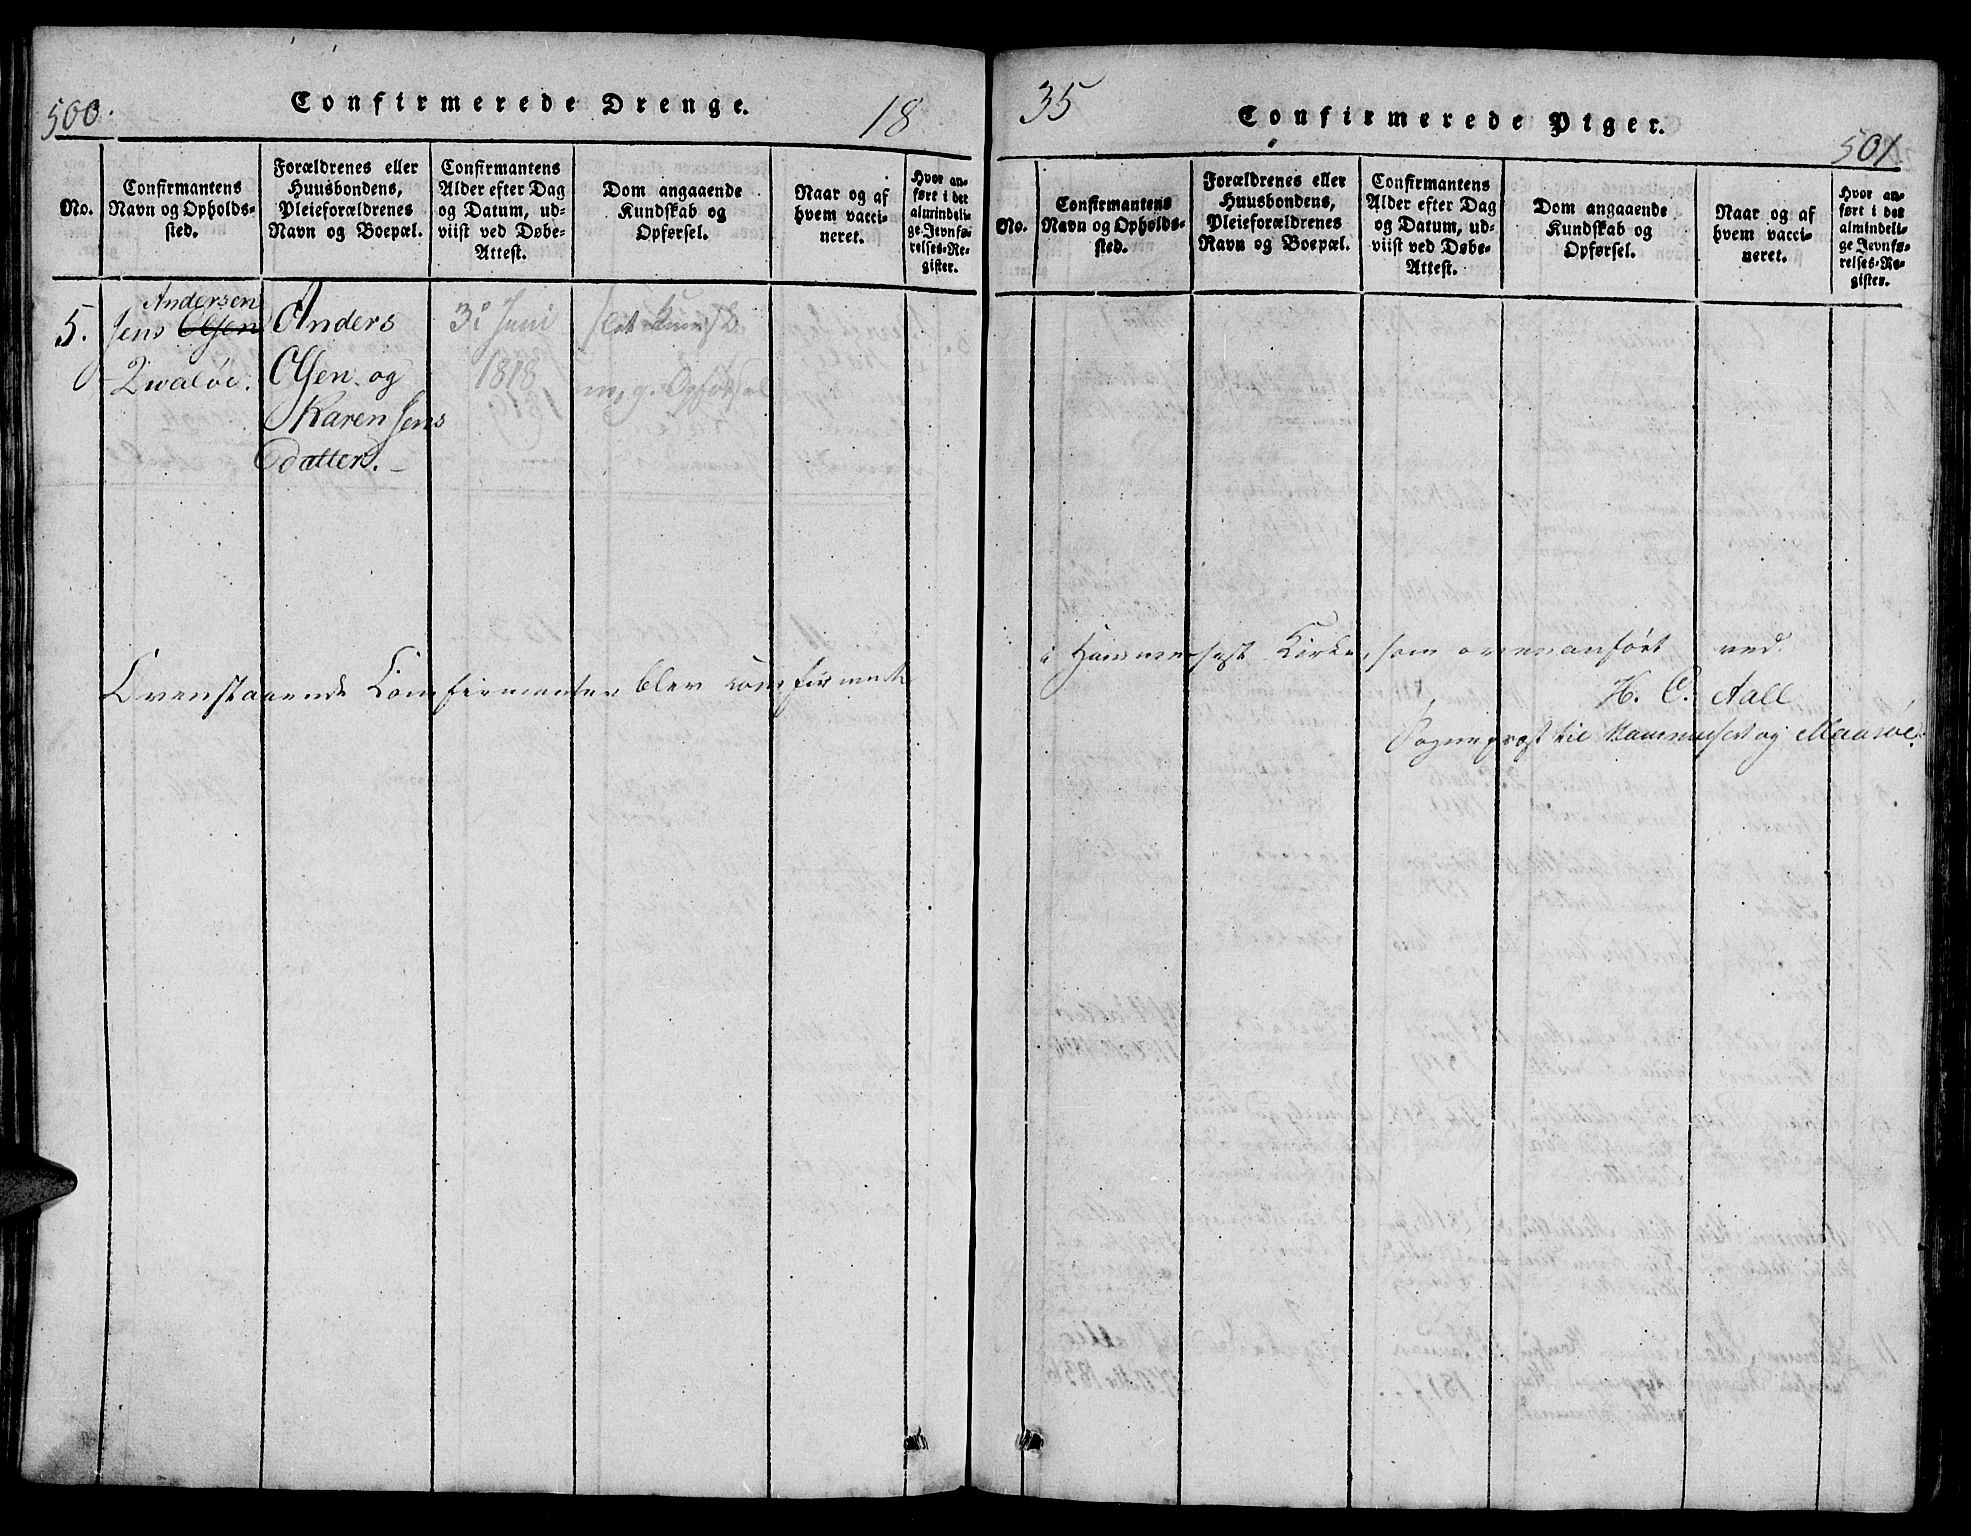 500.
Confirmerede Drenge.
18
No.
Confirmantens
Navn og Opholds-
sted.
Forældrenes eller
Huusbondens,
Pleieforældrenes
Navn og Boepæl.
Confirmantens
Alder efter Dag
og Datum, ud-
viist ved Døbe-
Attest.
Dom angaaende
Kundskab og
Opførsel.
Naar og af
hvem vacci-
neret.
Hvor an-
ført i det
almindeli-
ge Jevnfø-
relses-Re-
gister.
5.
Andersen
Jens Olsen
Qvaløe.
Anders
Olsen og
Karen Jens
datter.
3d Juni
1818
slet kundsk
m, g. Opførsel
Ovenstaaende Comfirmanter blev comfirmert
35
Confirmerede Piger.
501
No.
Confirmantens
Navn og Opholds-
sted.
Forældrenes eller
Huusbondens,
Pleieforældrenes
Navn og Boepæl.
Confirmantens
Alder efter Dag
og Datum, ud-
viist ved Døbe-
Attest.
Dom angaaende
Kundskab og
Opførsel.
Naar og af
hvem vacci-
neret.
Hvor an-
ført i det
almindeli-
ge Jevnfø-
relses-Re-
gister.
i Hammerfest Kirke, som ovenanført ved
H. C. Aall
Sogneprest til Hammerfest og Maasøe.